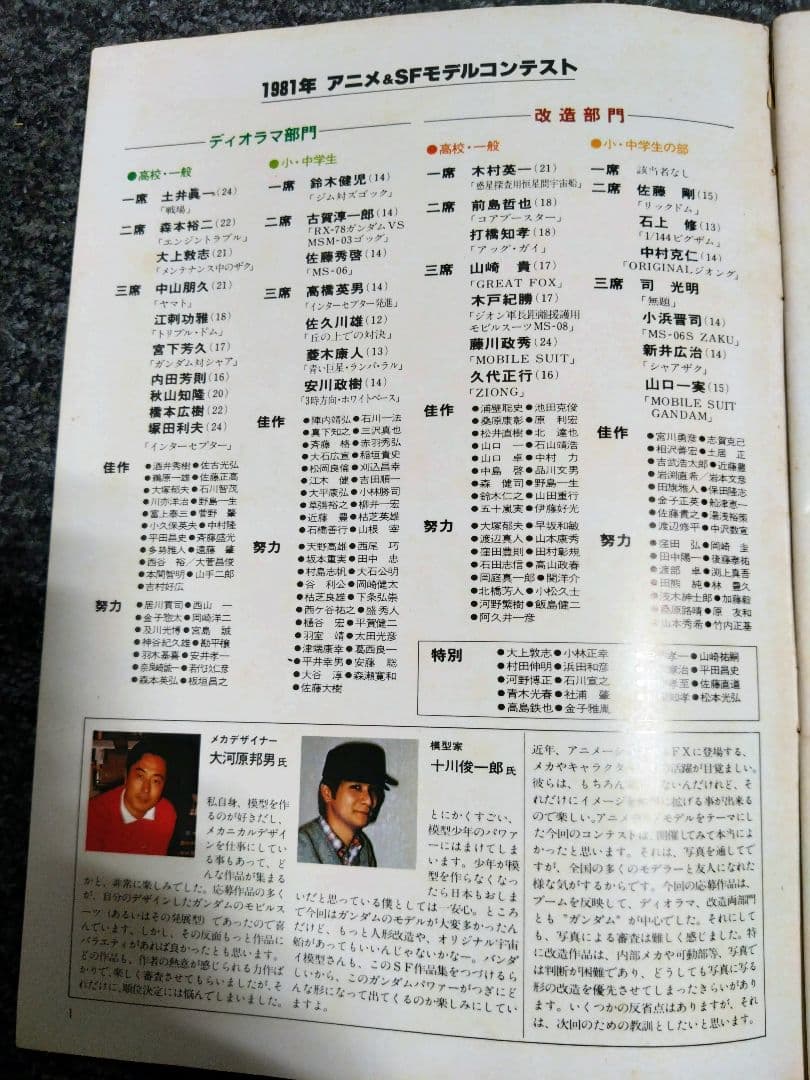 1981年 アニメ&SFモデルコンテスト
ディオラマ部門
●高校・一般
一席 土井眞一(24)
「戦場」
二席 森本裕二(22)
「エンジントラブル」
大上敦志(21)
「メンテナンス中のザク」
三席 中山朋久(21)
「ヤマト」
江刺功雅(18)
「トリプル・ドム」
宮下芳久(17)
「ガンダム対シャア」
内田芳則(16)
秋山知隆(20)
橋本広樹(22)
塚田利夫(24)
「インターセプター」
佳作
●酒井秀樹●佐古光弘
●鵜原一雄●佐藤正高
●大塚郁夫●石川智茂
●川亦洋治●野島一生
●冨上泰三●菅野 肇
●小久保英夫●中村隆
●平田昌史●斉藤盛光
●多勢雅人●遠藤 肇
●西谷 裕/大菅昌俊
●本間智明●山手二郎
●吉村好広
努力
●居川貢司●西山 一
●金子惣太●岡崎洋二
●及川光博●宮島 誠
●神谷紀久雄●勘平穣
●羽木基喜●安井孝一
●奈良崎誠一●若代紋仁彦
●森本英弘●板垣昌之
●小・中学生
一席 鈴木健児(14)
「ジム対ズゴック」
二席 古賀淳一郎(14)
「RX-78ガンダムVS
MSM-03ゴッグ」
佐藤秀啓(14)
「MS-06」
三席 高橋英男(14)
「インターセプター発進」
佐久川雄(12)
「丘の上での対決」
菱木康人(13)
「青い巨星・ランバ・ラル」
安川政樹(14)
「3時方向・ホワイトベース」
佳作
●陣内靖弘●石川一法
●真下知之●三沢真也
●斉藤 格●赤羽秀弘
●大石広宣●稲垣貴史
●松岡良倫●刈込昌幸
●江木 健●吉田順一
●大平康弘●小林勝司
●草彅裕之●柳井一宏
●近藤 豊●枯芝英雄
●石橋善行●山根 宰
努力
●天野高雄●西尾 巧
●坂本重実●田中 忠
●村島志帆●大石公明
●谷 利公●岡崎健太
●枯芝良雄●下条弘崇
●西ケ谷祐之●盛秀人
●樋谷 宏●平賀健二
●羽室 靖●太田光彦
●津端康幸●葛西良一
●平井幸男●安藤 聡
●大谷 淳●森瀬寛和
●佐藤大樹
改造部門
●高校・一般
一席 木村英一(21)
「惑星探査用恒星間宇宙船」
二席 前島哲也(18)
「コアブースター」
打橋知孝(18)
「アッグ・ガイ」
三席 山崎 貴(17)
「GREAT FOX」
木戸紀勝(17)
「ジオン軍長距離援護用
モビルスーツMS-08」
藤川政秀(24)
「MOBILE SUIT」
久代正行(16)
「ZIONG」
佳作
●浦壁聡史●池田克俊
●桑原康彰●原 利宏
●松井直樹●北 達也
●山口 一●石山靖浩
●山口 卓●中村 力
●中島 啓●品川文男
●森 健司●野島一生
●鈴木仁之●山田重行
●五十嵐実●伊藤好光
努力
●大塚郁夫●早坂和敏
●渡辺真人●山本康秀
●窪田豊則●田村彰規
●石田志信●高山政春
●岡庭真一郎●関洋介
●北橋芳人●小松久士
●河野繁樹●飯島健二
●阿久井一彦
●小・中学生の部
一席 該当者なし
二席 佐藤 剛(15)
「リックドム」
石上 修(13)
「1/144ビグザム」
中村克仁(14)
「ORIGINALジオング」
三席 司 光明
「無題」
小浜晋司(14)
「MS-06S ZAKU」
新井広治(14)
「シャアザク」
山口一実(15)
「MOBILE SUIT
GANDAM」
佳作
●宮川勇彦●志賀克己
●相沢善宏●土居 正
●吉武浩太郎●近藤豊
●岩渕直希/岩本文彦
●田旗雅人●保田隆志
●金子正英●船津恵一
●佐藤貴之●湯浅裕策
●渡辺修平●中沢数宣
努力
●窪田 弘●岡崎 圭
●田中陽一●後藤泰祐
●渡部 卓●渕上真吾
●田熊 純●林 豊久
●浅木紳士郎●加藤毅
●桑原路晴●原 友和
●山本秀希●竹内正基
特別
●大上敦志●小林正幸
●村田伸明●浜田和彦
●河野博正●石川宣之
●青木光春●社浦 肇
●高島鉄也●金子雅胤
孝一●山崎祐嗣
治●平田昌史
孝至●佐藤直道
知孝●松本光弘
メカデザイナー
大河原邦男氏
私自身、模型を作
るのが好きだし、
メカニカルデザイン
を仕事にしてい
る事もあって、ど
んな作品が集まる
かと、非常に楽しみでした。応募作品の多く
が、自分のデザインしたガンダムのモビルス
ーツ(あるいはその発展型)であったので喜
んでいます。しかし、その反面もっと作品に
バラエティがあれば良かったとも思います。
どの作品も、作者の熱意が感じられる力作ば
かりで、楽しく審査させてもらいましたが、そ
れだけに、順位決定には悩んでしまいました。
模型家
十川俊一郎氏
とにかくすごい、
模型少年のパワァ
ーにはまけてしま
います。少年が模
型を作らなくなっ
たら日本もおしま
いだと思っている僕としては一安心。ところ
で今回はガンダムのモデルが大変多かったん
だけど、もっと人形改造や、オリジナル宇宙
船があってもいいんじゃないかなー。バンダ
イ模型さんも、このSF作品集をつづけるら
しいから、このガンダムパワァーがつぎにど
んな形になって出てくるのか楽しみにしてい
ますよ。
近年、アニメーシ FXに登場する、
メカやキャラクタ の活躍が目覚ましい。
彼らは、もちろん ないんだけれど、そ
れだけにイメージを 拡げる事が出来る
ので楽しい。アニメ モデルをテーマにし
た今回のコンテストは、開催してみて本当によ
かったと思います。それは、写真を通してで
すが、全国の多くのモデラーと友人になれた
様な気がするからです。今回の応募作品は、
ブームを反映して、ディオラマ、改造両部門
とも〝ガンダム〟が中心でした。それにして
も、写真による審査は難しく感じました。特
に改造作品は、内部メカや可動部等、写真で
は判断が困難であり、どうしても写真に写る
形の改造を優先させてしまったきらいがあり
ます。いくつかの反省点はありますが、それ
は、次回のための教訓としたいと思います。
1